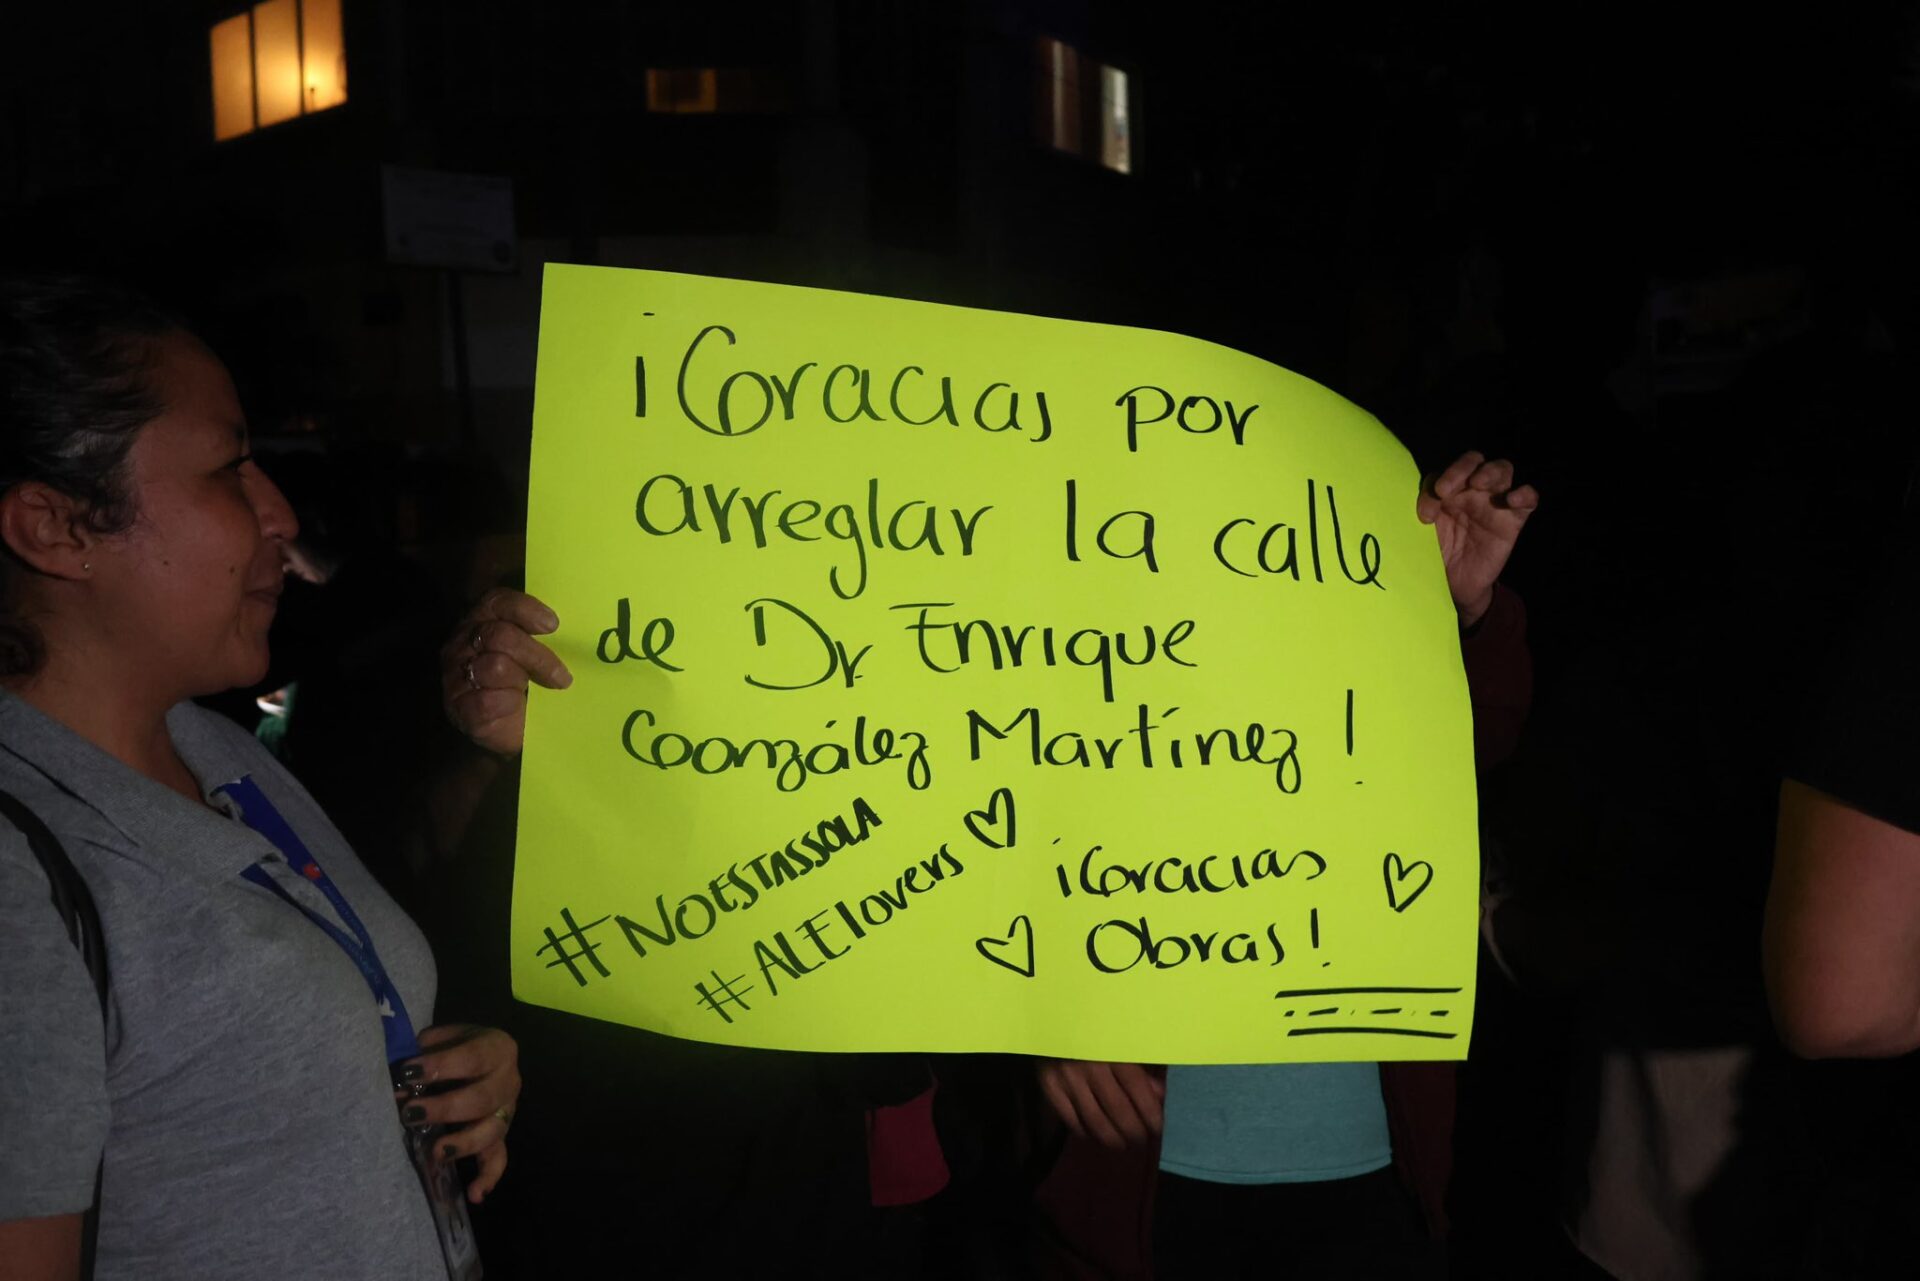 ¡Gracias por
arreglar la calle
de Dr Enrique
González Martínez!
#NOESTASSOLA
#ALElovers
¡Gracias
Obras!